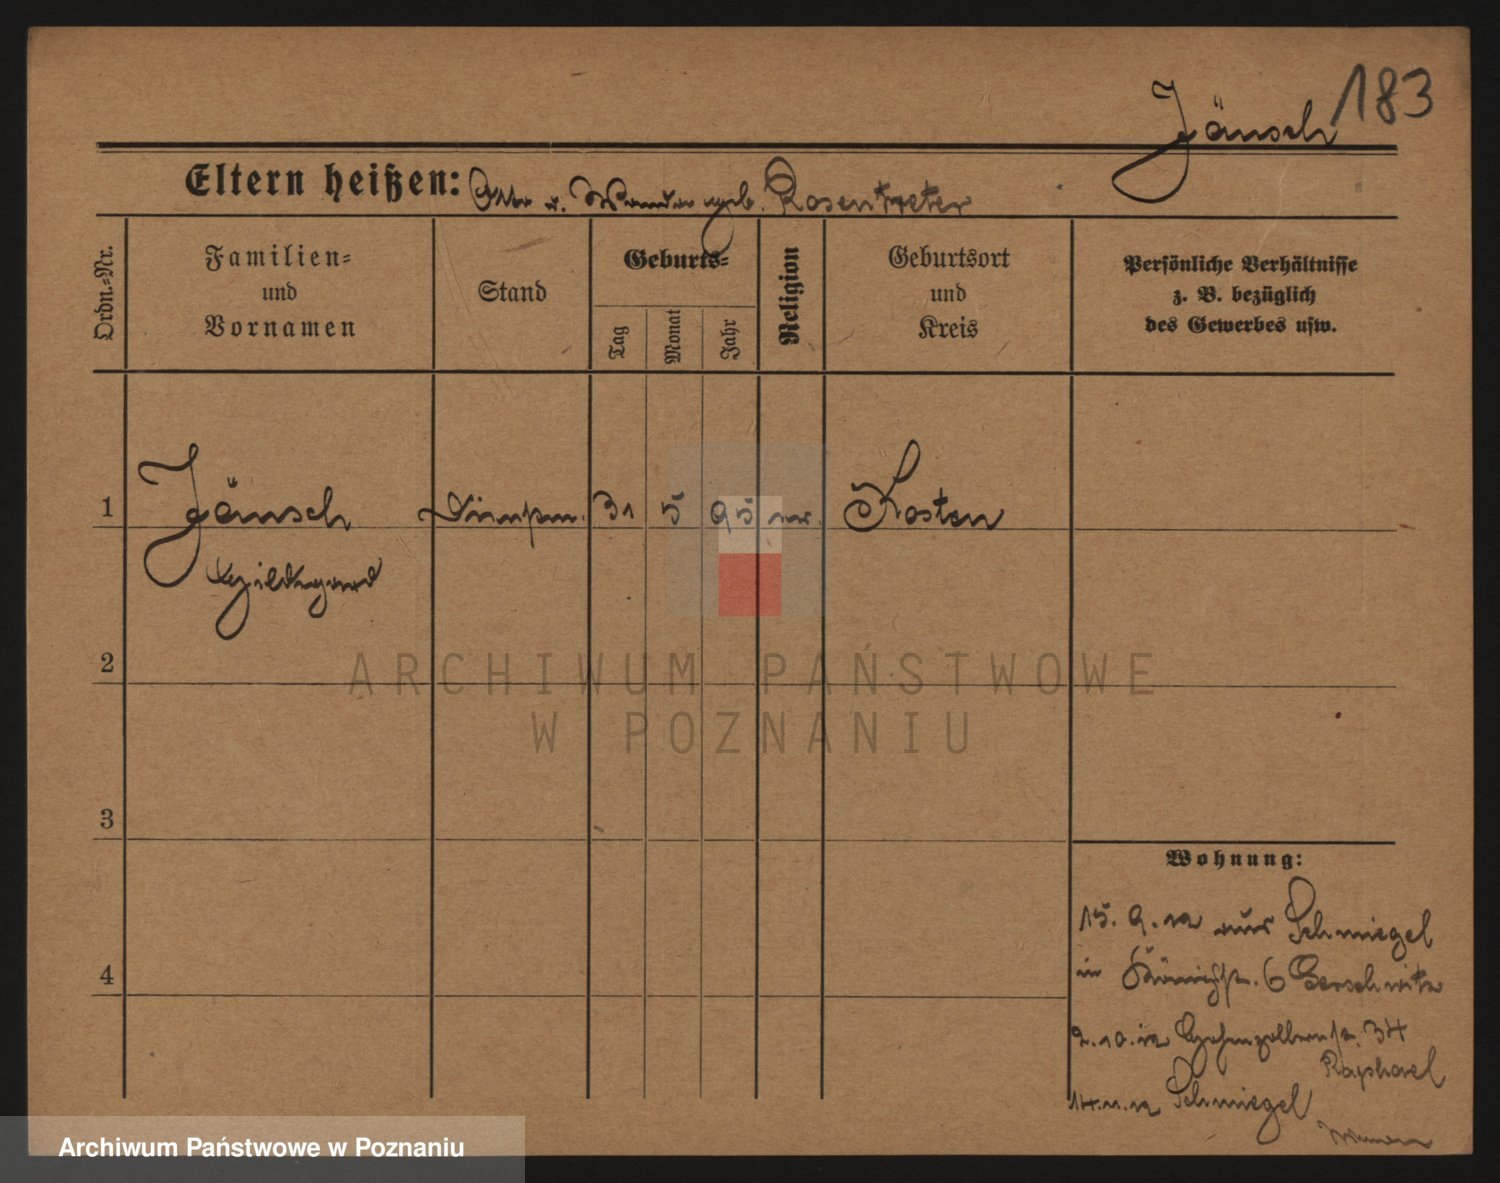 183
Jänsch
Eltern heißen: Otto u. geb. Rosentreter
Ordn.=Nr.
Familien=
und
Vornamen
Stand
Geburts=
Tag
Monat
Jahr
Religion
Geburtsort
und
Kreis
Persönliche Verhältnisse
z. B. bezüglich
des Gewerbes usw.
1
Jänsch
31
5
95
Kosten
Hildegard
2
ARCHIWUM PAŃSTWOWE
W POZNANIU
3
Wohnung:
15. 9. 12 aus Schmiegel
in 6 Gerschwitz
4
2. 10. 12 Hohenzollernstr. 34
Raphael
14. 11. 12 Schmiegel
Archiwum Państwowe w Poznaniu